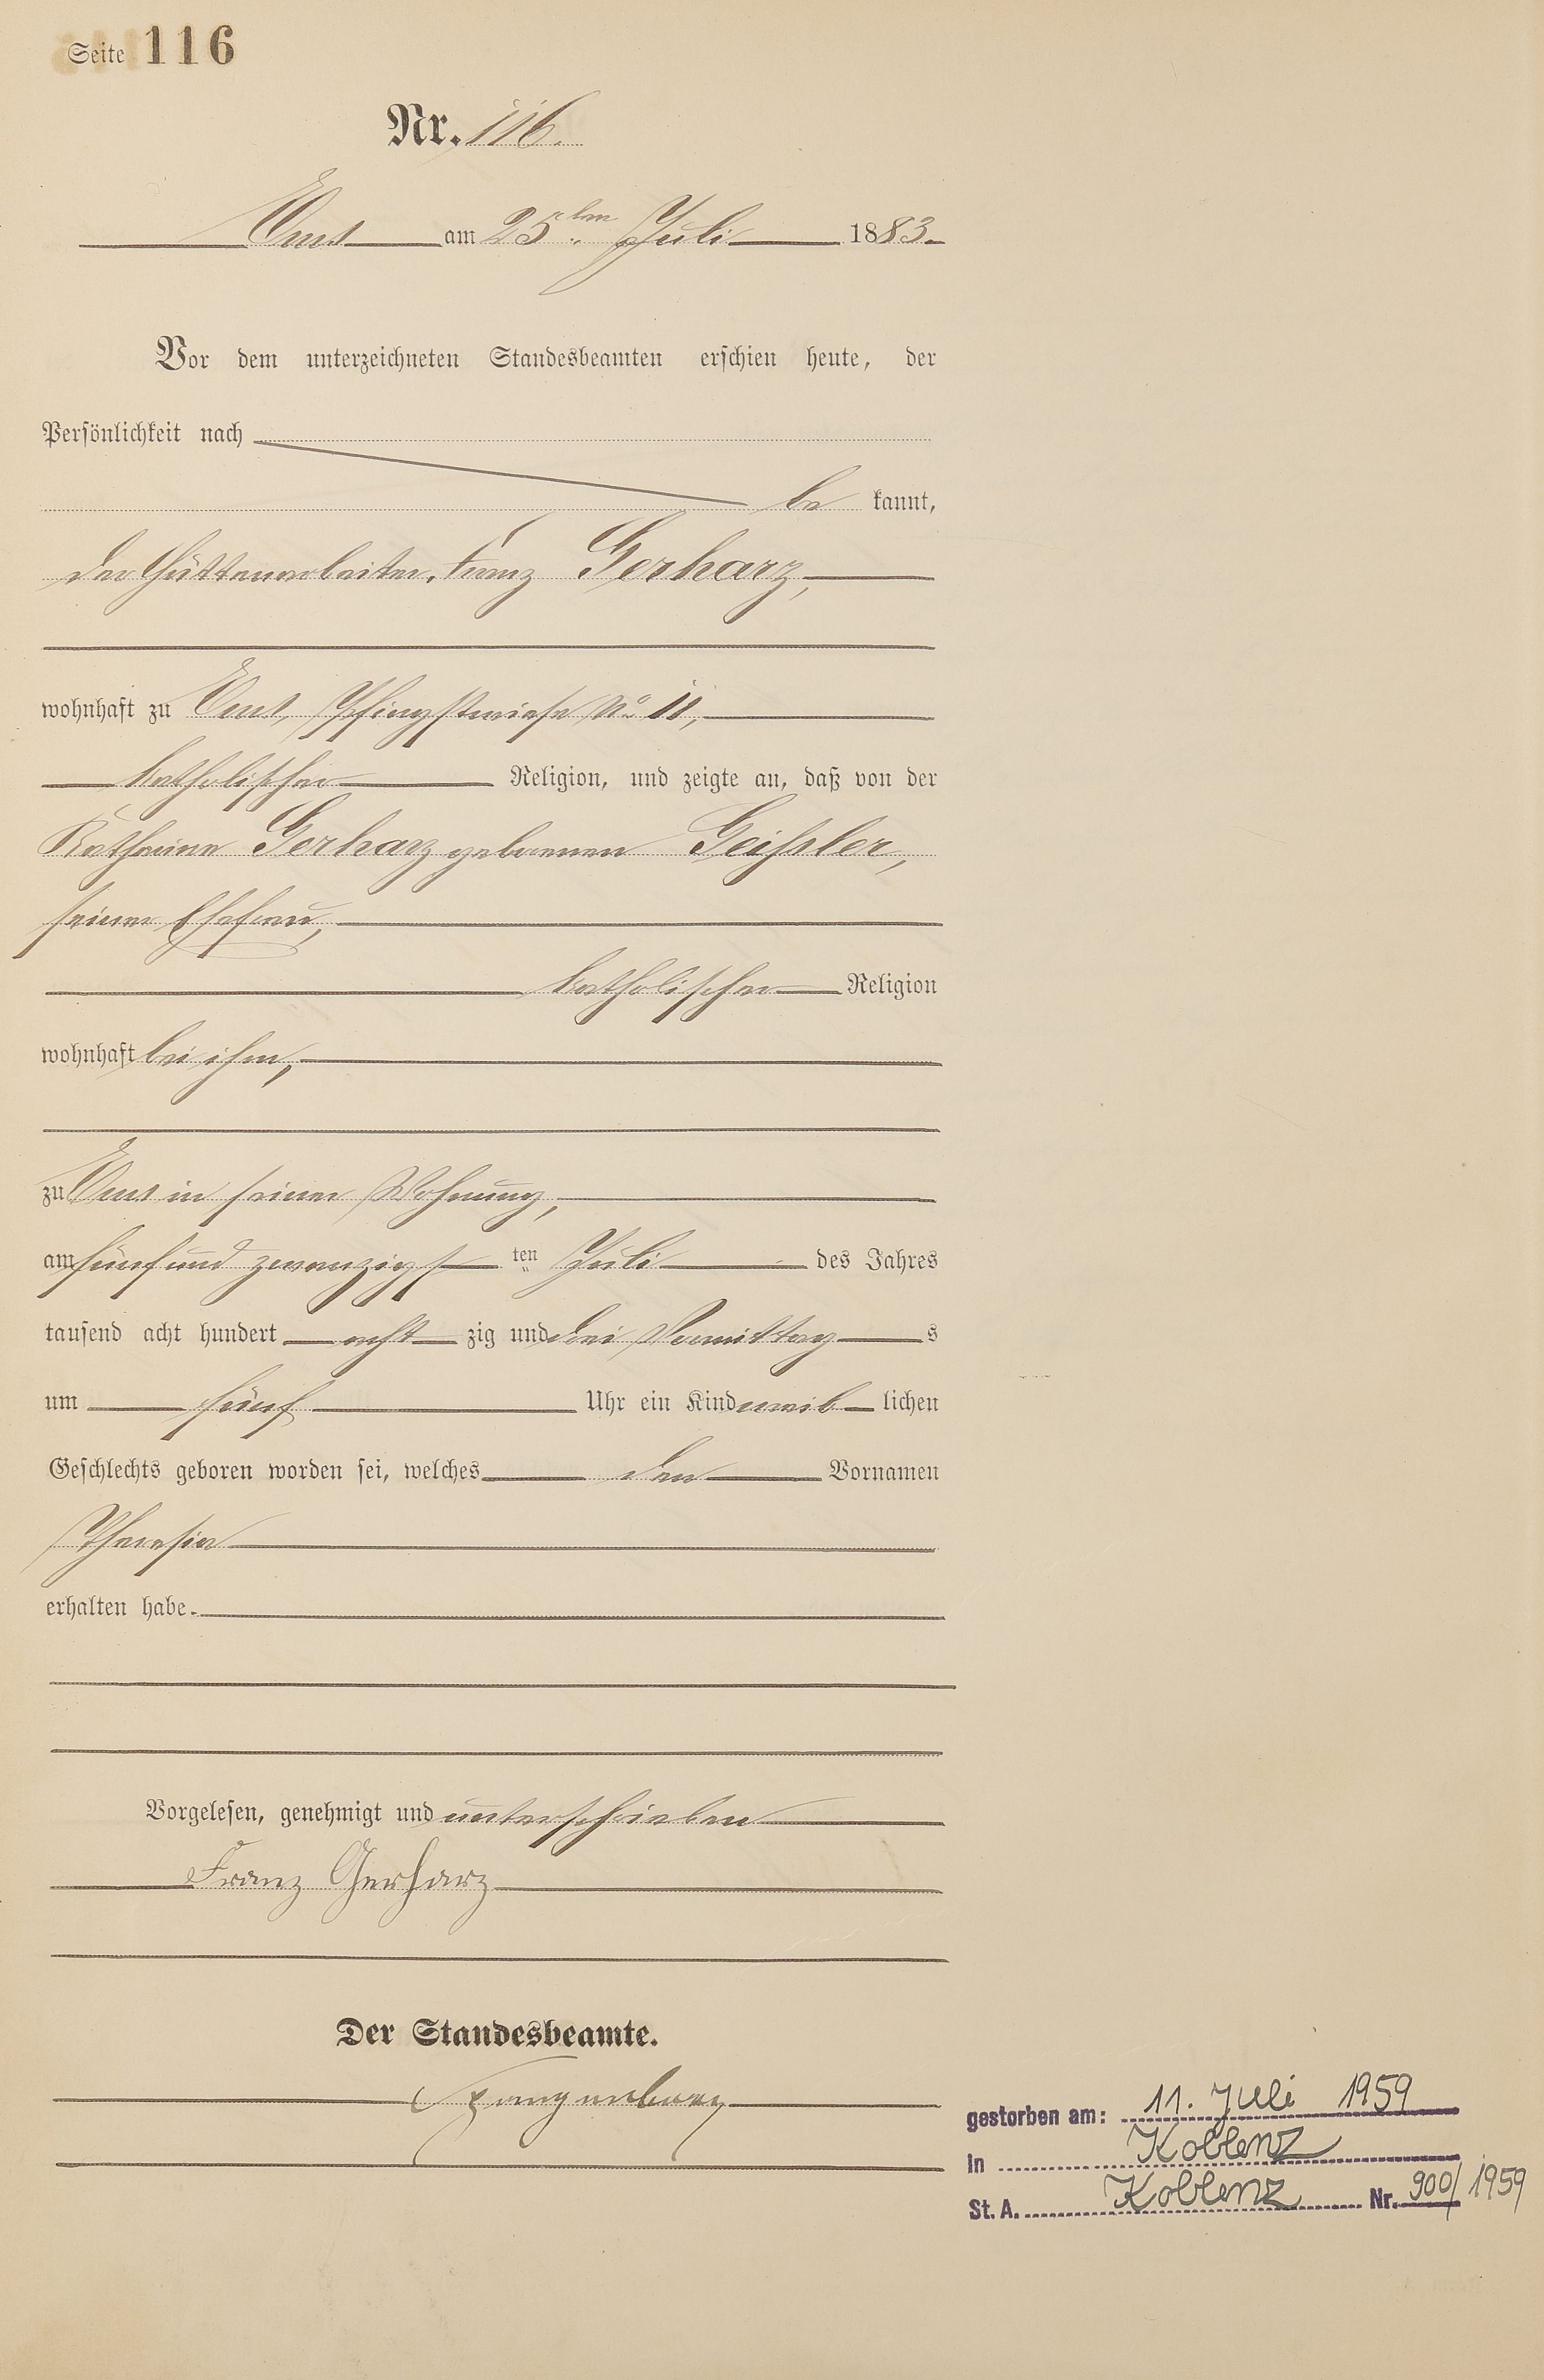 Seite 116
Nr. 116.
Ems am 25ten Juli 1883.
Vor dem unterzeichneten Standesbeamten erschien heute, der
Persönlichkeit nach
be kannt,
der Hüttenarbeiter Franz Gerharz,
wohnhaft zu Ems, Pfingstwiese No 11,
katholischer Religion, und zeigte an, daß von der
Katharina Gerharz geborenen Geißler,
seiner Ehefrau,
katholischer Religion
wohnhaft bei ihm,
zu Ems in seiner Wohnung,
am fünf und zwanzigst ten Juli des Jahres
tausend acht hundert acht zig und drei Vormittag s
um fünf Uhr ein Kind weib lichen
Geschlechts geboren worden sei, welches den Vornamen
Theresia
erhalten habe.
Vorgelesen, genehmigt und unterschrieben
Franz Gerharz
Der Standesbeamte.
gestorben am: 11. Juli 1959
in Koblenz
St. A. Koblenz Nr. 900/1959